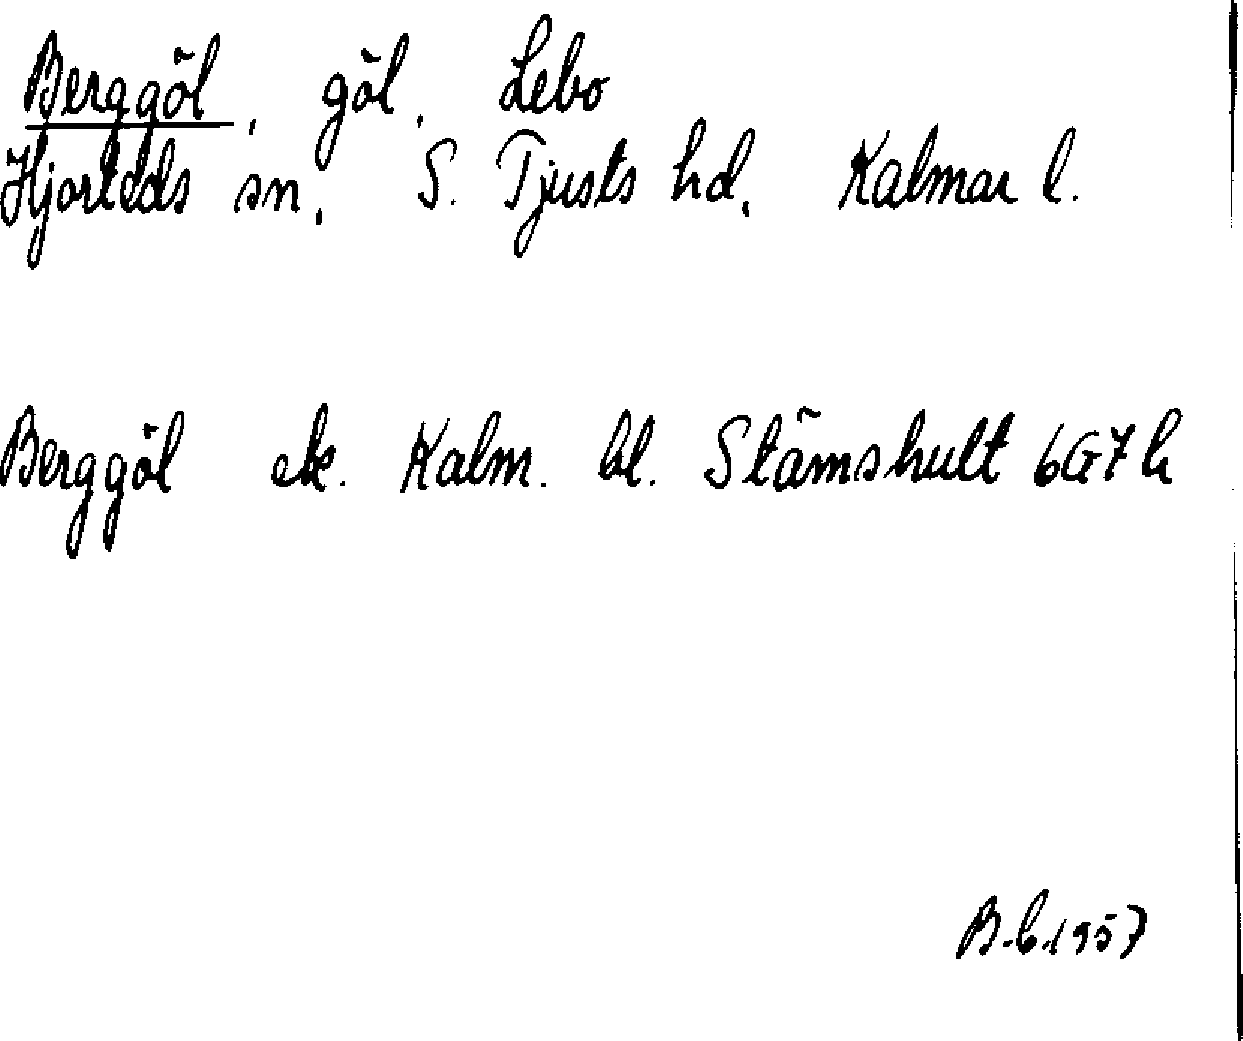 Berggöl, göl, Lebo
Hjorteds sn, S. Tjusts hd, Kalmar l.
Berggöl ek. Kalm. bl. Stämshult 6G7h
B.C.1957